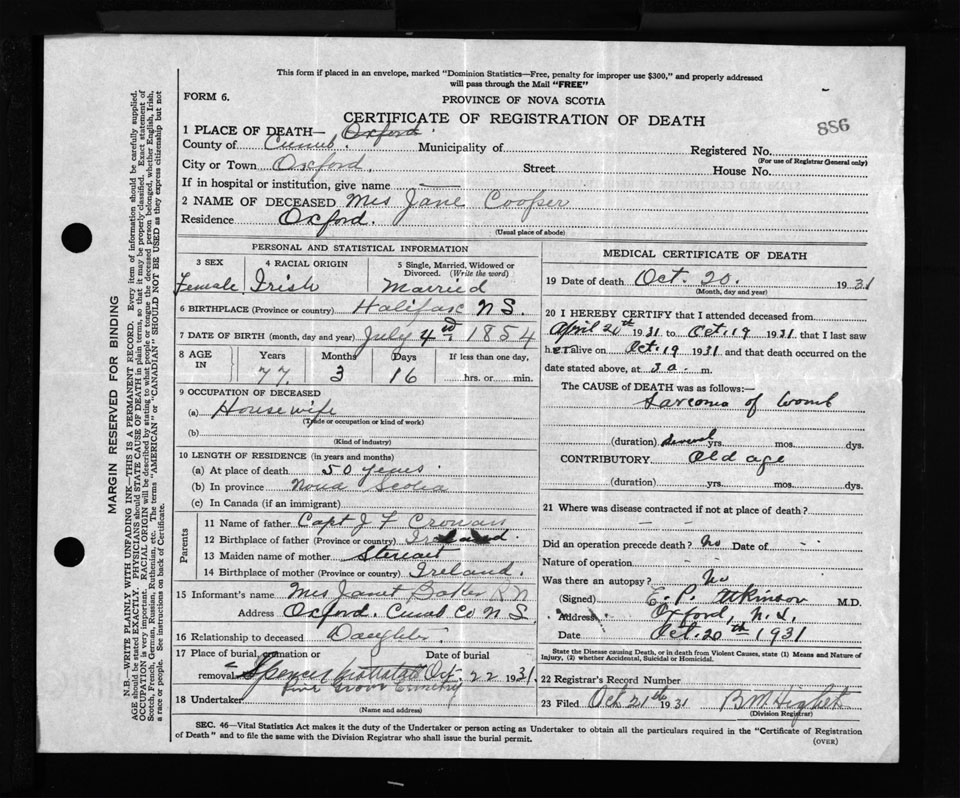 This form if placed in an envelope, marked "Dominion Statistics—Free, penalty for improper use $300," and properly addressed
will pass through the Mail "FREE"
FORM 6.
PROVINCE OF NOVA SCOTIA
CERTIFICATE OF REGISTRATION OF DEATH
886
1 PLACE OF DEATH— Oxford.
County of Cumb. Municipality of Registered No.
(For use of Registrar General only)
City or Town Oxford. Street House No.
If in hospital or institution, give name —
2 NAME OF DECEASED Mrs Jane Cooper
Residence Oxford.
(Usual place of abode)
PERSONAL AND STATISTICAL INFORMATION
3 SEX 4 RACIAL ORIGIN 5 Single, Married, Widowed or Divorced. (Write the word)
Female Irish Married
6 BIRTHPLACE (Province or country) Halifax N S.
7 DATE OF BIRTH (month, day and year) July 4 1854
8 AGE IN Years Months Days If less than one day,
77. 3 16 hrs. or min.
9 OCCUPATION OF DECEASED
(a) Housewife
(Trade or occupation or kind of work)
(b)
(Kind of industry)
10 LENGTH OF RESIDENCE (in years and months)
(a) At place of death 50 years.
(b) In province Nova Scotia
(c) In Canada (if an immigrant)
Parents
11 Name of father Capt J F
12 Birthplace of father (Province or country) Ireland.
13 Maiden name of mother Stewart
14 Birthplace of mother (Province or country) Ireland.
15 Informant's name Mrs Janet Baker R N
Address Oxford. Cumb Co N S.
16 Relationship to deceased Daughter
17 Place of burial, cremation or removal Date of burial
Oct. 22 1931.
Pine Grove Cemetery
18 Undertaker
(Name and address)
MEDICAL CERTIFICATE OF DEATH
19 Date of death Oct. 20. 1931
(Month, day and year)
20 I HEREBY CERTIFY that I attended deceased from
April 1931 to Oct. 19 1931 that I last saw
her alive on Oct. 19 1931 and that death occurred on the
date stated above, at 3 a. m.
The CAUSE OF DEATH was as follows:—
Sarcoma of Womb
(duration) several yrs. mos. dys.
CONTRIBUTORY Old age
(duration) yrs. mos. dys.
21 Where was disease contracted if not at place of death?
— —
Did an operation precede death? No Date of
Nature of operation
Was there an autopsy? No
(Signed) E. P. Atkinson M.D.
Address Oxford, N.S.
Date Oct. 20th 1931
State the Disease causing Death, or in death from Violent Causes, state (1) Means and Nature of
Injury, (2) whether Accidental, Suicidal or Homicidal.
22 Registrar's Record Number
23 Filed Oct 21 1931
(Division Registrar)
SEC. 46—Vital Statistics Act makes it the duty of the Undertaker or person acting as Undertaker to obtain all the particulars required in the "Certificate of Registration
of Death" and to file the same with the Division Registrar who shall issue the burial permit.
(OVER)
MARGIN RESERVED FOR BINDING
N.B.—WRITE PLAINLY WITH UNFADING INK—THIS IS A PERMANENT RECORD. Every item of information should be carefully supplied.
AGE should be stated EXACTLY. PHYSICIANS should STATE CAUSE OF DEATH in plain terms, so that it may be properly classified. Exact statement of
OCCUPATION is very important. RACIAL ORIGIN will be described by stating to what people or tongue the deceased person belonged, whether English, Irish,
Scotch, French, German, Russian, Ruthenian, etc. The terms "AMERICAN" or "CANADIAN" SHOULD NOT BE USED as they express citizenship but not
a race or people. See instructions on back of Certificate.